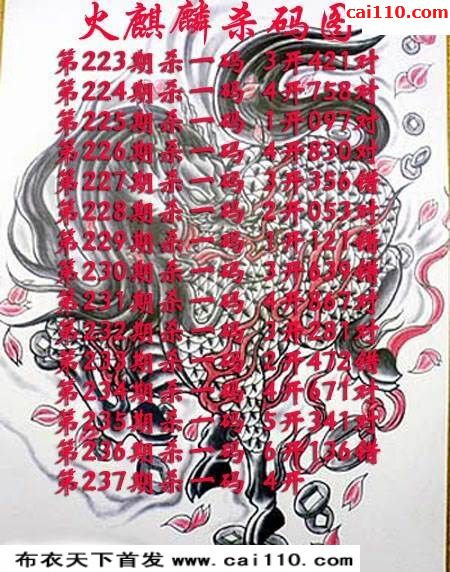 cai110.com
火麒麟杀码图
第223期杀一码 3开421对
第224期杀一码 4开758对
第225期杀一码 1开097对
第226期杀一码 4开830对
第227期杀一码 3开356错
第228期杀一码 2开053对
第229期杀一码 1开121错
第230期杀一码 3开639错
第231期杀一码 4开867对
第232期杀一码 3开281对
第233期杀一码 2开472错
第234期杀一码 4开671对
第235期杀一码 5开341对
第236期杀一码 6开136错
第237期杀一码 4开
布衣天下首发 www.cai110.com